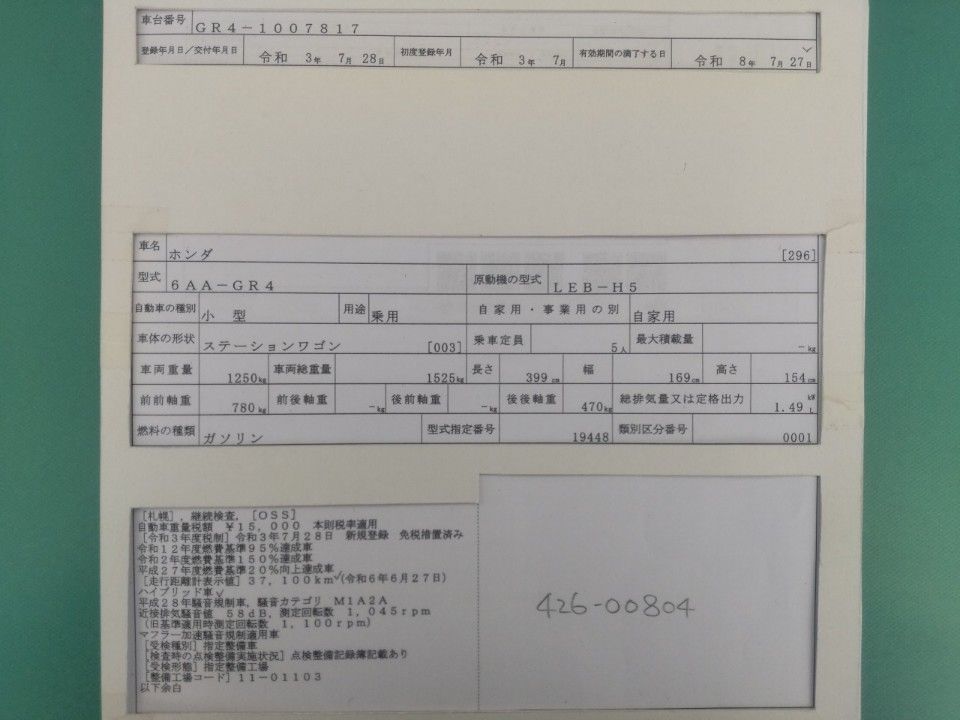 車台番号 GR4-1007817
登録年月日/交付年月日 令和 3年 7月 28日 初度登録年月 令和 3年 7月 有効期間の満了する日 令和 8年 7月 27日
車名 ホンダ [296]
型式 6AA-GR4 原動機の型式 LEB-H5
自動車の種別 小 型 用途 乗用 自家用・事業用の別 自家用
車体の形状 ステーションワゴン [003] 乗車定員 5人 最大積載量 -kg
車両重量 1250kg 車両総重量 1525kg 長さ 399cm 幅 169cm 高さ 154cm
前前軸重 780kg 前後軸重 -kg 後前軸重 -kg 後後軸重 470kg 総排気量又は定格出力 1.49 kW L
燃料の種類 ガソリン 型式指定番号 19448 類別区分番号 0001
[札幌],継続検査,[OSS]
自動車重量税額 ¥15,000 本則税率適用
[令和3年度税制]令和3年7月28日 新規登録 免税措置済み
令和12年度燃費基準95%達成車
令和2年度燃費基準150%達成車
平成27年度燃費基準20%向上達成車
[走行距離計表示値]37,100km(令和6年6月27日)
ハイブリッド車
平成28年騒音規制車,騒音カテゴリ M1A2A
近接排気騒音値 58dB,測定回転数 1,045rpm
(旧基準適用時測定回転数 1,100rpm)
マフラー加速騒音規制適用車
[受検種別]指定整備車
[検査時の点検整備実施状況]点検整備記録簿記載あり
[受検形態]指定整備工場
[整備工場コード]11-01103
以下余白
426-00804